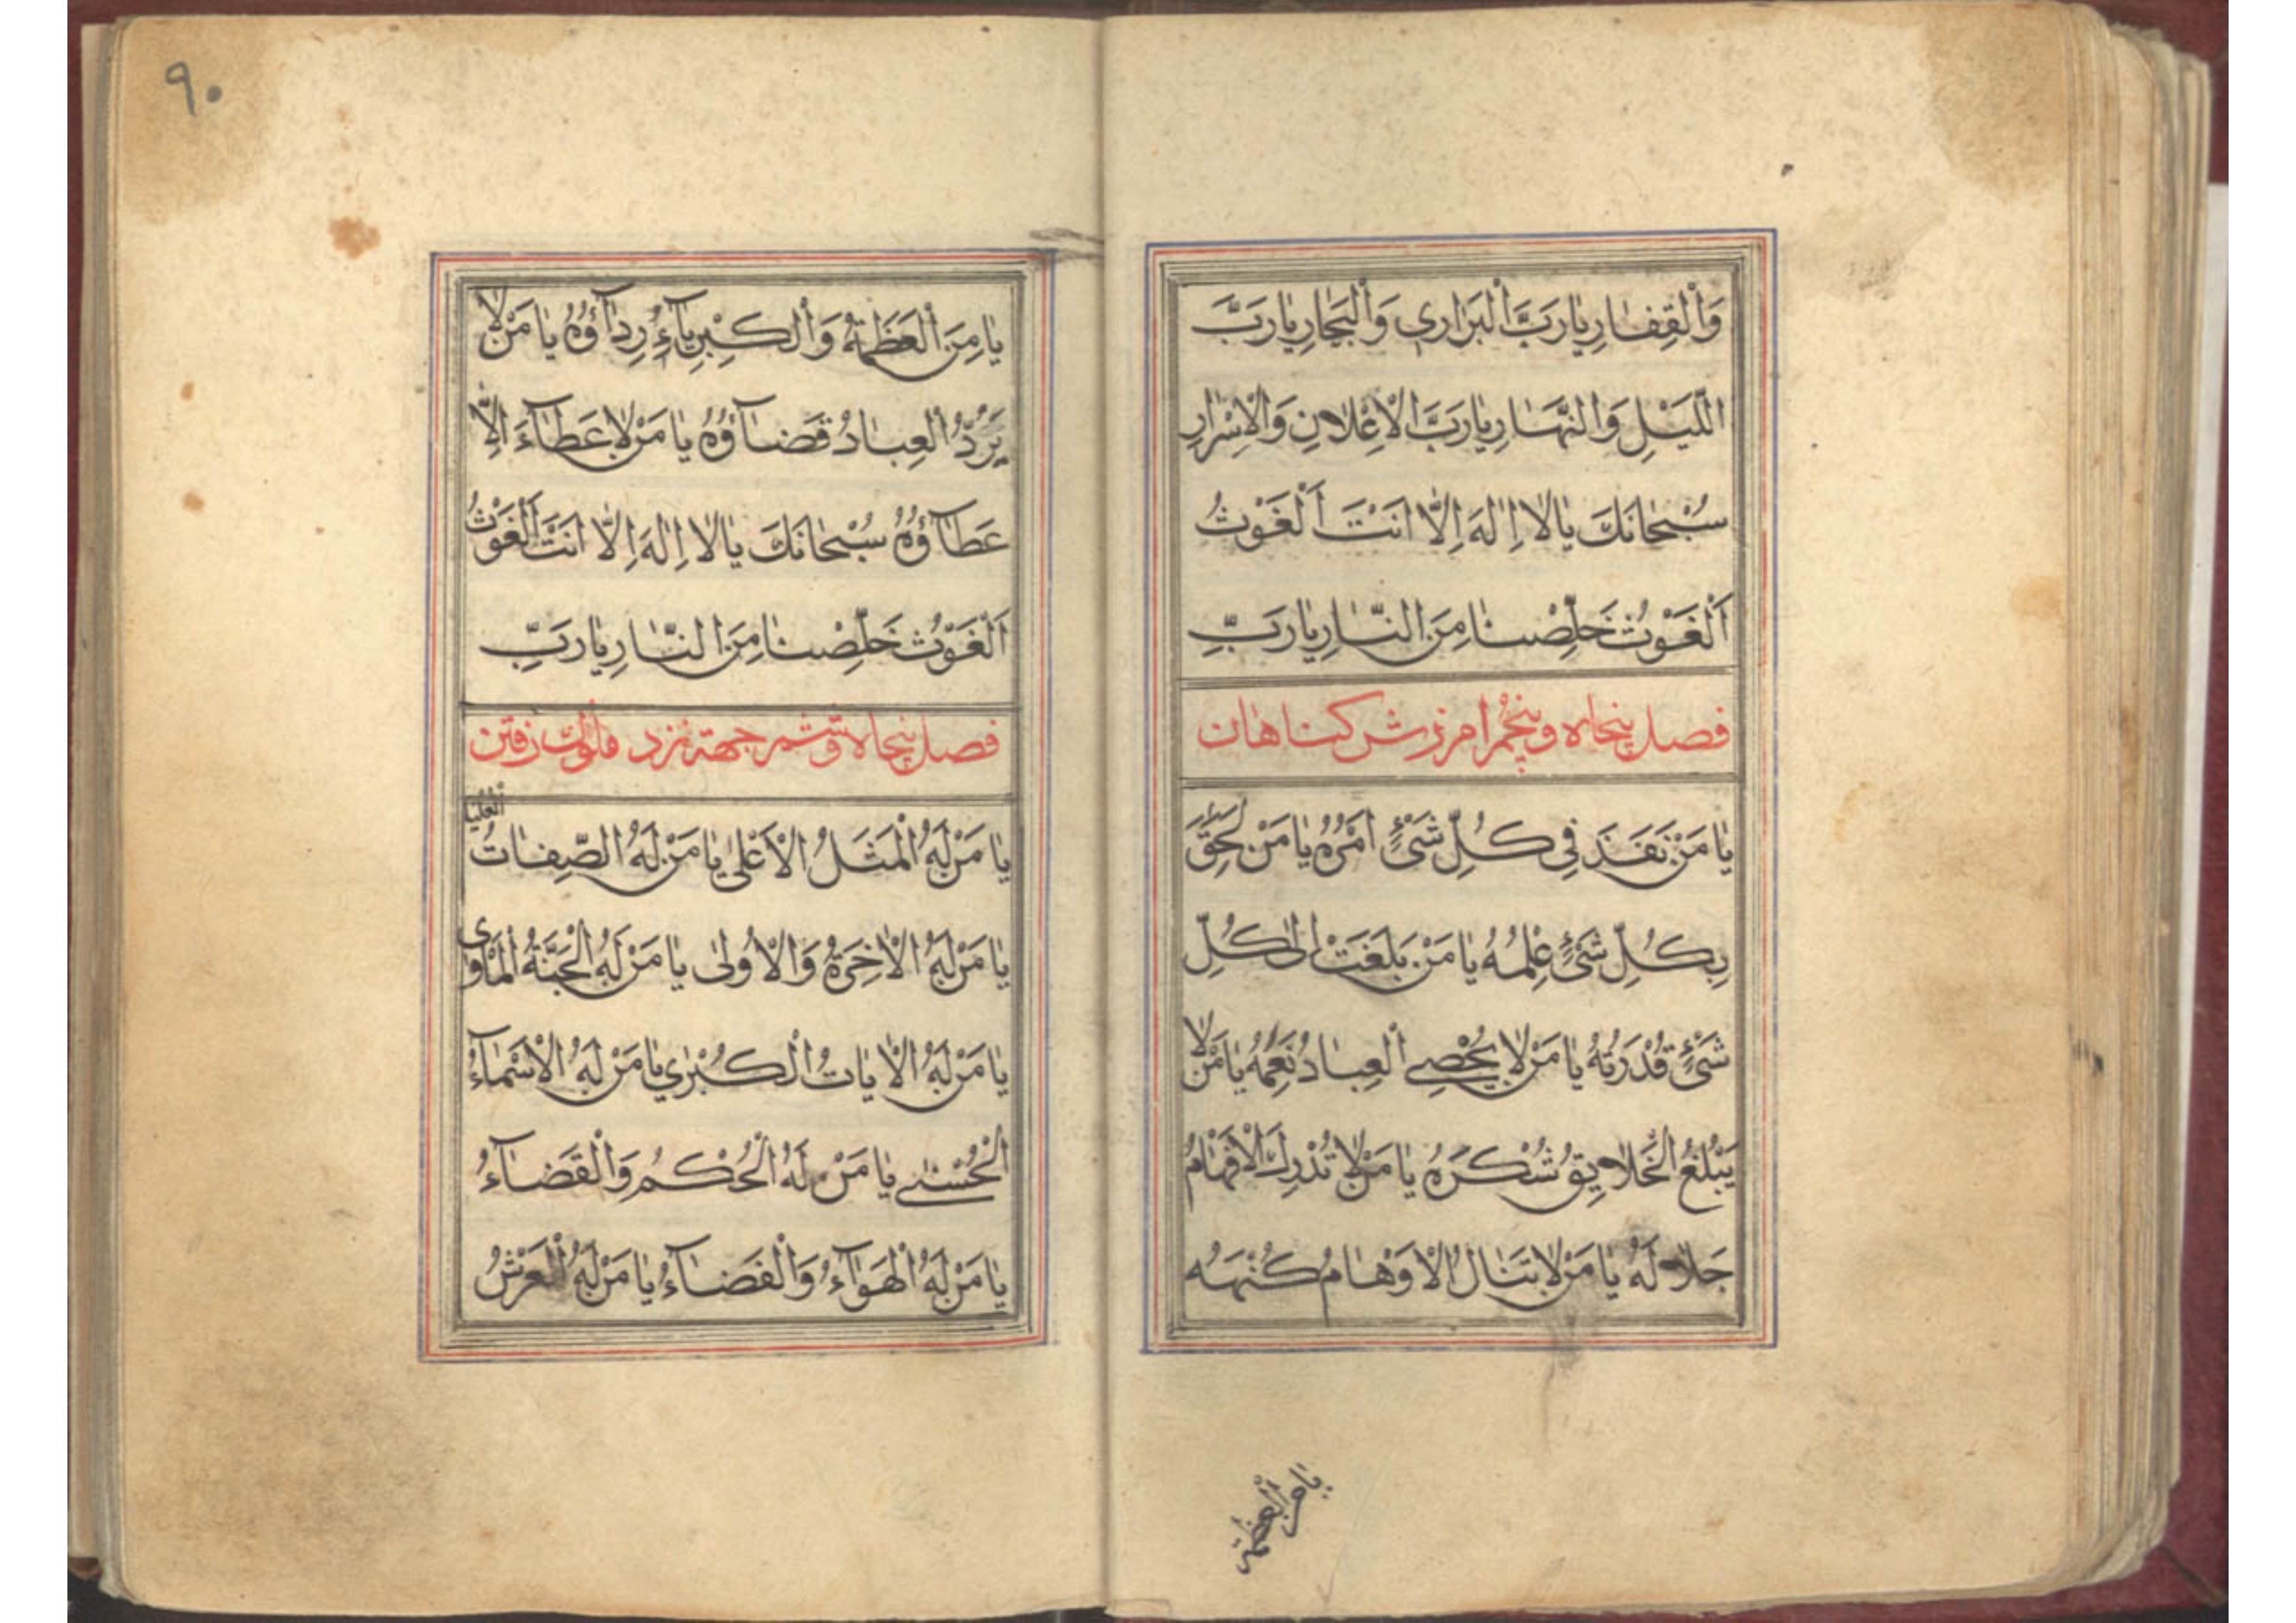 وَالْقِفٰارِ يٰا رَبَّ الْبَرٰاري وَالْبِحٰارِ يٰا رَبَّ
اللَّيْلِ وَالنَّهٰارِ يٰا رَبَّ الْاِعْلٰانِ وَالْاِسْرٰارِ
سُبْحٰانَكَ يٰا لٰا اِلٰهَ اِلّٰا اَنْتَ اَلْغَوْثُ
اَلْغَوْثُ خَلِّصْنٰا مِنَ النّٰارِ يٰا رَبِّ
فصل پنجاه و پنجم امرزش كناهان
يٰا مَنْ نَفَذَ فِي كُلِّ شَيْءٍ اَمْرُهُ يٰا مَنْ لَحِقَ
بِكُلِّ شَيْءٍ عِلْمُهُ يٰا مَنْ بَلَغَتْ اِلىٰ كُلِّ
شَيْءٍ قُدْرَتُهُ يٰا مَنْ لٰا يُحْصِي الْعِبٰادُ نِعَمَهُ يٰا مَنْ لٰا
يَبْلُغُ الْخَلٰايِقُ شُكْرَهُ يٰا مَنْ لٰا تُدْرِكُ الْاَفْهٰامُ
جَلٰالَهُ يٰا مَنْ لٰا تَنٰالُ الْاَوْهٰامُ كُنْهَهُ
يٰا مِنَ الْعَظَمَةُ
٩٠
يٰا مِنَ الْعَظَمَةُ وَالْكِبْرِيٰآءُ رِدٰآؤُهُ يٰا مَنْ لٰا
يَرُدُّ الْعِبٰادُ قَضٰآؤُهُ يٰا مَنْ لٰا عَطٰآءَ اِلّٰا
عَطٰآؤُهُ سُبْحٰانَكَ يٰا لٰا اِلٰهَ اِلّٰا اَنْتَ اَلْغَوْثُ
اَلْغَوْثُ خَلِّصْنٰا مِنَ النّٰارِ يٰا رَبِّ
فصل پنجاه و ششم جهة نزد ملوك رفتن
يٰا مَنْ لَهُ الْمَثَلُ الْاَعْلىٰ يٰا مَنْ لَهُ الصِّفٰاتُ الْعُلْيٰا
يٰا مَنْ لَهُ الْاٰخِرَةُ وَالْاُولىٰ يٰا مَنْ لَهُ الْجَنَّةُ الْمَأْوىٰ
يٰا مَنْ لَهُ الْاٰيٰاتُ الْكُبْرٰي يٰا مَنْ لَهُ الْاَسْمٰآءُ
الْحُسْنىٰ يٰا مَنْ لَهُ الْحُكْمُ وَالْقَضٰآءُ
يٰا مَنْ لَهُ الْهَوٰآءُ وَالْفَضٰآءُ يٰا مَنْ لَهُ الْعَرْشُ